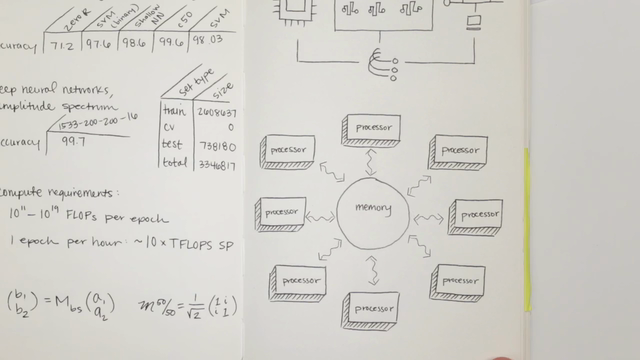 zeroR
SVM (binary)
shallow NN
c50
SVM
ccuracy 71.2 97.6 98.6 99.6 98.03
eep neural networks,
mplitude spectrum
1533-200-200-16
ccuracy 99.7
set type size
train 2608637
cv 0
test 738180
total 3346817
ompute requirements:
10^11 - 10^19 FLOPs per epoch
1 epoch per hour: ~10 x TFLOPS SP
(b1 b2) = Mbs (a1 a2)
m 50/50 = 1/√2 (1 i i 1)
processor
processor
processor
processor
memory
processor
processor
processor
processor